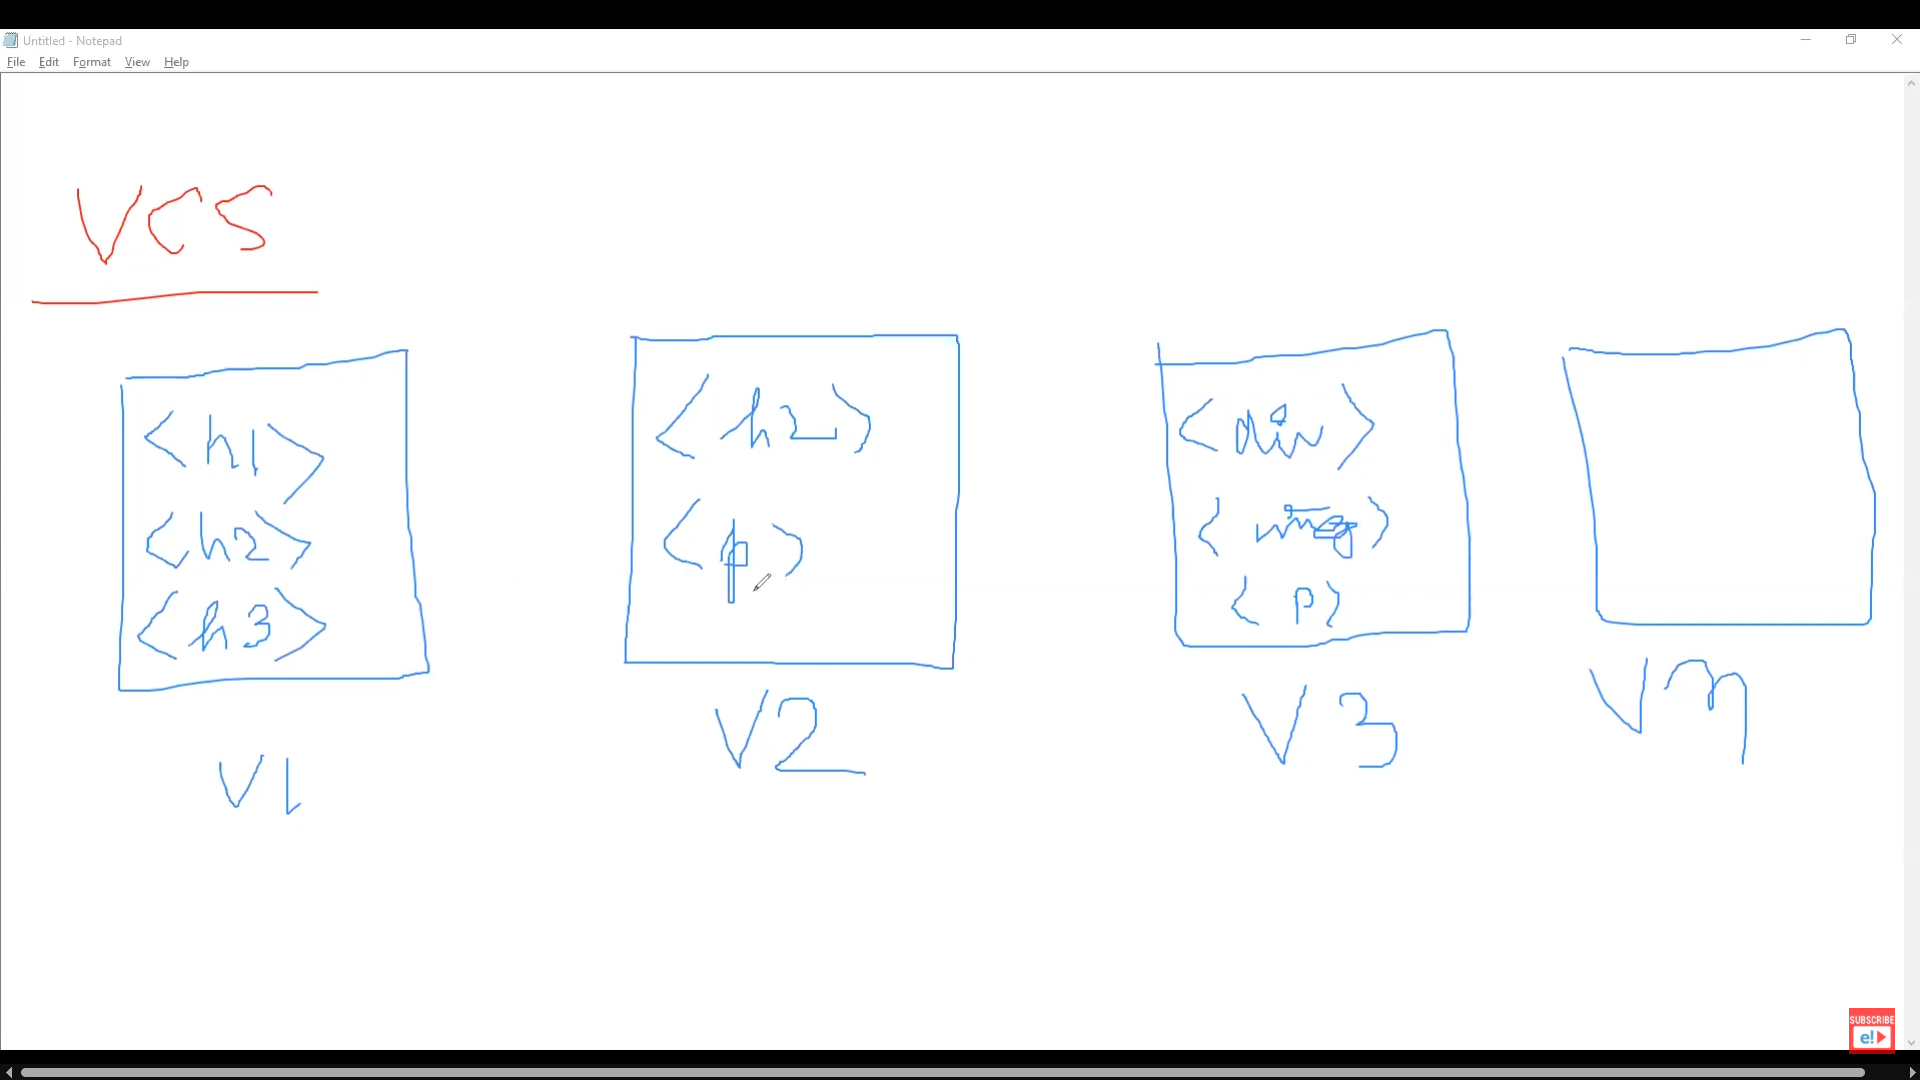 Untitled - Notepad
File Edit Format View Help
VCS
<h1>
<h2>
<h3>
V1
<h2>
<p>
V2
<div>
<img>
<p>
V3
Vn
SUBSCRIBE
e!